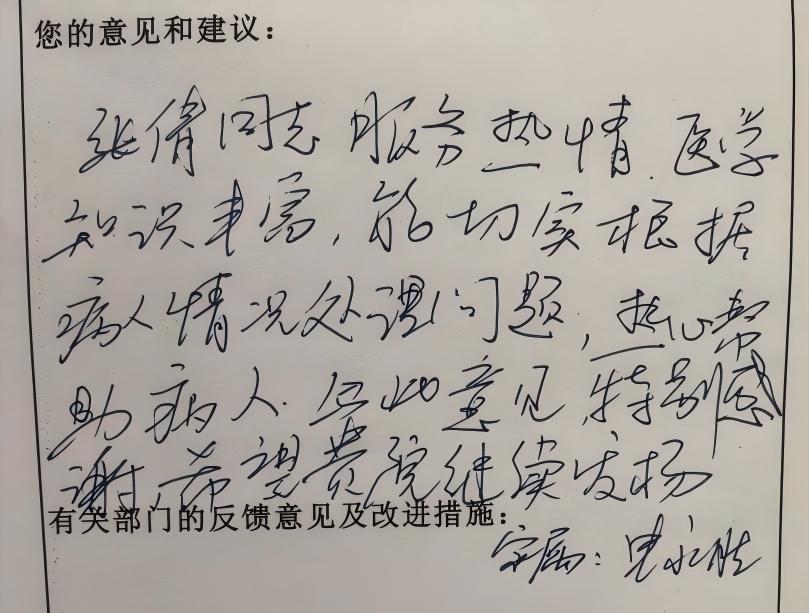 您的意见和建议：
张倩同志服务热情.医学
知识丰富，能切实根据
病人情况处理问题，热心帮
助病人.只此意见,特别感
谢,希望贵院继续发扬
有关部门的反馈意见及改进措施：
家属：永胜